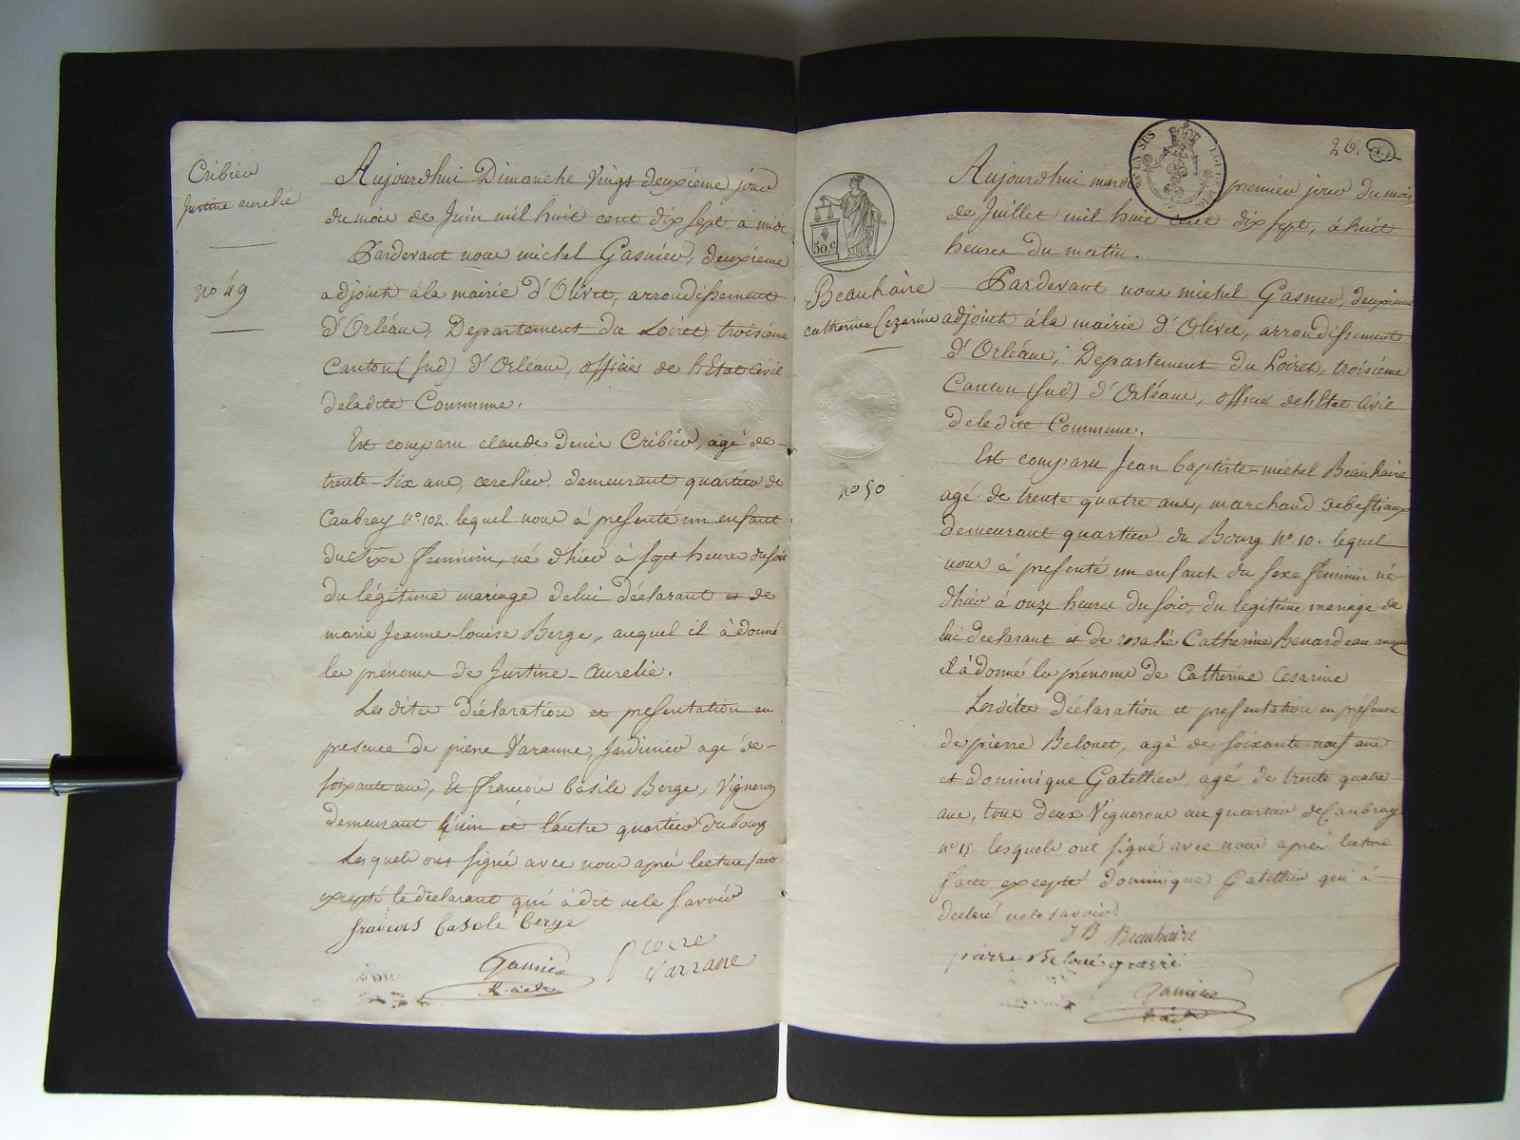 Cribier
Justine aurelie
n° 49
Aujourdhui Dimanche Vingt deuxième jour
du mois de Juin mil huit cent dix sept, à midi
Pardevant nous michel Gasnier, deuxieme
adjoint à la mairie d'Olivet, arrondissement
d'Orléans, Departement du Loiret, troisième
Canton (Sud) d'Orléans, officier de l'Etat Civil
de la dite Commune.
Est comparu claude denis Cribier, agé de
trente-six ans, demeurant quartier de
Caubray n° 102. lequel nous à presenté un enfant
du sexe feminin, né d'hier à sept heures du soir
du légitime mariage de lui déclarant et de
marie Jeanne louise Berge, auquel il à donné
les prénoms de Justine-Aurelie.
Les dites déclaration et presentation en
presence de pierre Varanne, Jardinier agé de
soixante ans, Et francois basile Berge, Vigneron
demeurant l'un et l'autre quartier du bourg
Lesquels ont signé avec nous après lecture faite
excepté le déclarant qui à dit ne le savoir
francois basile berge
Gasnier
pierre
Varrane
26.
50 c
Beauhaire
catherine Cezarine
n° 50
Aujourdhui mardi premier jour du mois
de Juillet mil huit cent dix sept, à huit
heures du matin.
Pardevant nous michel Gasnier, deuxieme
adjoint à la mairie d'Olivet, arrondissement
d'Orléans, Departement du Loiret, troisième
Canton (Sud) d'Orléans, officier de l'Etat Civil
de la dite Commune.
Est comparu Jean baptiste-michel Beauhaire
agé de trente quatre ans, marchand de bestiaux
demeurant quartier du Bourg n° 10. lequel
nous à presenté un enfant du sexe feminin né
d'hier à onze heures du soir, du legitime mariage de
lui déclarant et de rosalie Catherine Benardeau auquel
il à donné les prénoms de Catherine Cesarine
Lesdites déclaration et presentation en présence
de pierre Belouet, agé de soixante neuf ans
et dominique Gatellier agé de trente quatre
ans, tous deux Vignerons au quartier de Caubray
n° 15 lesquels ont signé avec nous après lecture
faite excepté dominique Gatellier qui à
déclaré ne le savoir
J B Beauhaire
pierre Beloué
Gasnier